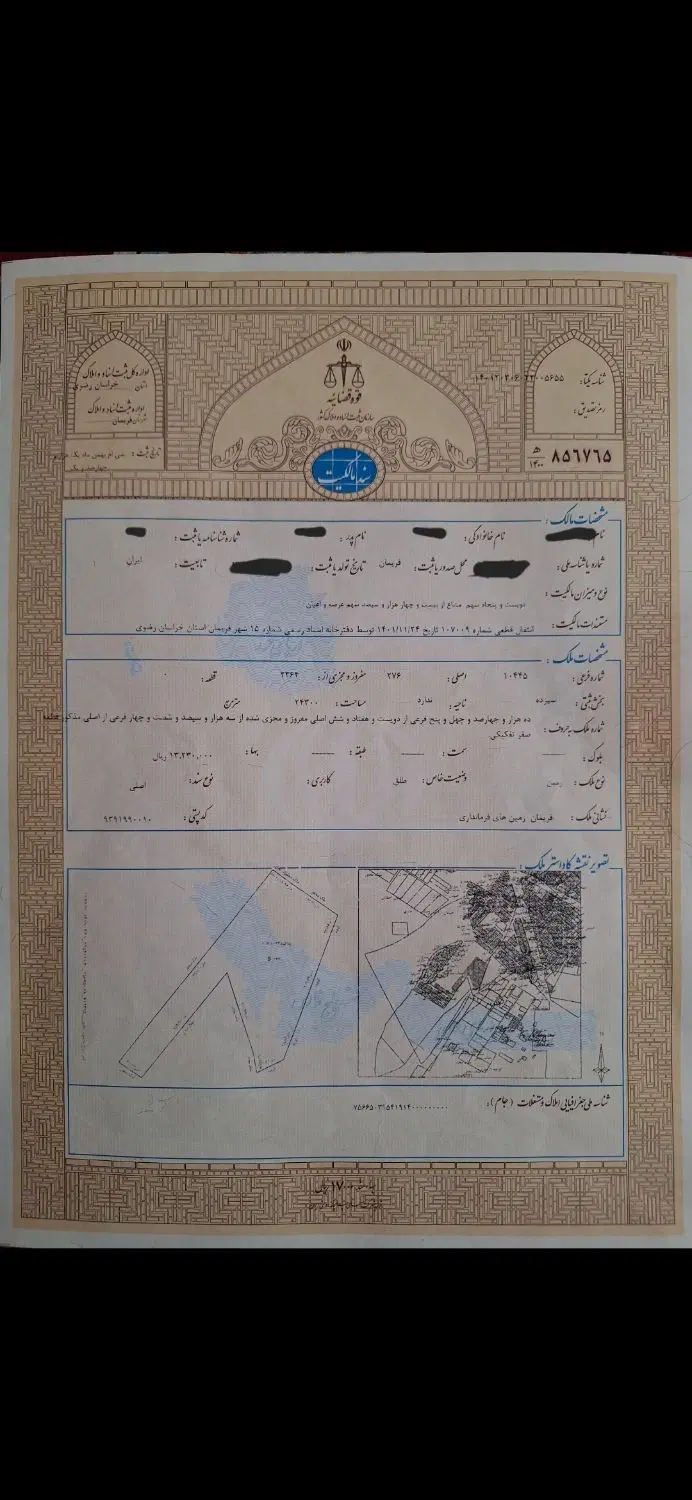 قوه قضائیه
سازمان ثبت اسناد و املاک کشور
سند مالکیت
اداره کل ثبت اسناد و املاک
استان خراسان رضوی
اداره ثبت اسناد و املاک
شهرستان فریمان
تاریخ ثبت : سی ام بهمن ماه یک هزار و چهارصد و یک
شناسه یکتا:
رمز تصدیق :
۸۵۶۷۶۵ ه‍ ۱۴۰۰
مشخصات مالک :
نام نام خانوادگی : نام پدر : شماره شناسنامه یا ثبت :
شماره یا شناسه ملی : محل صدور یا ثبت : فریمان تاریخ تولد یا ثبت : تابعیت : ایران
نوع و میزان مالکیت :
دویست و پنجاه سهم مشاع از بیست و چهار هزار و سیصد سهم عرصه و اعیان
مستندات مالکیت : انتقال قطعی شماره ۱۰۷۰۰۹ تاریخ ۱۴۰۱/۱۱/۲۴ توسط دفترخانه اسناد رسمی شماره ۱۵ شهر فریمان استان خراسان رضوی
مشخصات ملک :
شماره فرعی : ۱۰۴۴۵ اصلی : ۲۷۶ مفروز و مجزی از : ۳۳۶۴ قطعه : ۰
بخش ثبتی : سیزده ناحیه : ندارد مساحت : ۲۴۳۰۰ مترمربع
شماره ملک به حروف : ده هزار و چهارصد و چهل و پنج فرعی از دویست و هفتاد و شش اصلی مفروز و مجزی شده از سه هزار و سیصد و شصت و چهار فرعی از اصلی مذکور قطعه
صفر تفکیکی
بلوک : سمت : طبقه : بها : ۱۳,۲۳۰,۰۰۰ ریال
نوع ملک : زمین وضعیت خاص : طلق کاربری : نوع سند : اصلی
نشانی ملک : فریمان زمین های فرمانداری کدپستی : ۹۳۹۱۹۹۰۰۱۰
تصویر نقشه کاداستر ملک :
شناسه ملی جغرافیایی املاک و مستغلات (جام) :